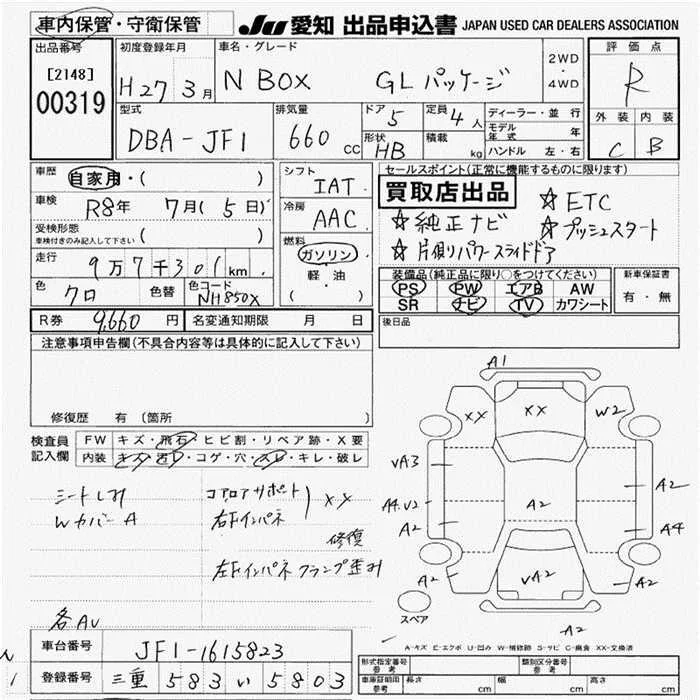 車内保管・守衛保管 JU 愛知 出品申込書 JAPAN USED CAR DEALERS ASSOCIATION
出品番号 初度登録年月 車名・グレード 評価点
[2148] H27年3月 N BOX GLパッケージ 2WD・4WD R
00319
型式 排気量 ドア 5 定員 4人 ディーラー・並行 外装 内装
DBA-JF1 660cc 形状 HB 積載 kg モデル年式 年 C B
ハンドル 左・右
車歴 自家用・( ) シフト IAT セールスポイント(正常に機能するものに限ります)
車検 R8年 7月(5日) 冷房 AAC 買取店出品 ☆ETC
☆純正ナビ ☆プッシュスタート
受検形態 ( ) 燃料 ☆片側パワースライドドア
車検付きのみ記入して下さい
走行 9万7千301km ガソリン 装備品(純正品に限り○をつけてください) 新車保証書
軽油 PS PW エアB AW 有・無
色 クロ 色替 色コード NH850X ( ) SR ナビ TV カワシート
R券 9,660円 名変通知期限 月 日 後日品
注意事項申告欄(不具合内容等は具体的に記入して下さい)
修復歴 有(箇所
検査員記入欄 FW キズ・飛石・ヒビ割・リペア跡・X要
内装 キズ・汚レ・コゲ・穴・スレ・キレ・破レ
シートしみ コアロアサポート
Wカバー A 右Fインパネ XX
修復
左Fインパネ フランプ歪み
各AU
A1
XX XX W2
VA3
A4.U2 A2 A2
A2 A4
A2 VA2 A2
スペア
A2
A-キズ E-エクボ U-凹み W-補修跡 S-サビ C-腐食 XX-交換済
車台番号 JF1-1615823
登録番号 三重 583 い 5803
形式指定番号 参考 類別区分番号 参考
車庫証明用 参考 長さ cm 幅 cm 高さ cm